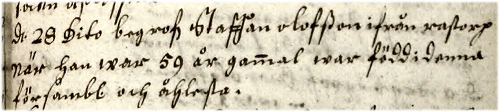 de 28 Dito begrofs Staffan olofsson ifrån rastorp
när han war 59 år gammal war föddi denna
försambl och åhlesta.